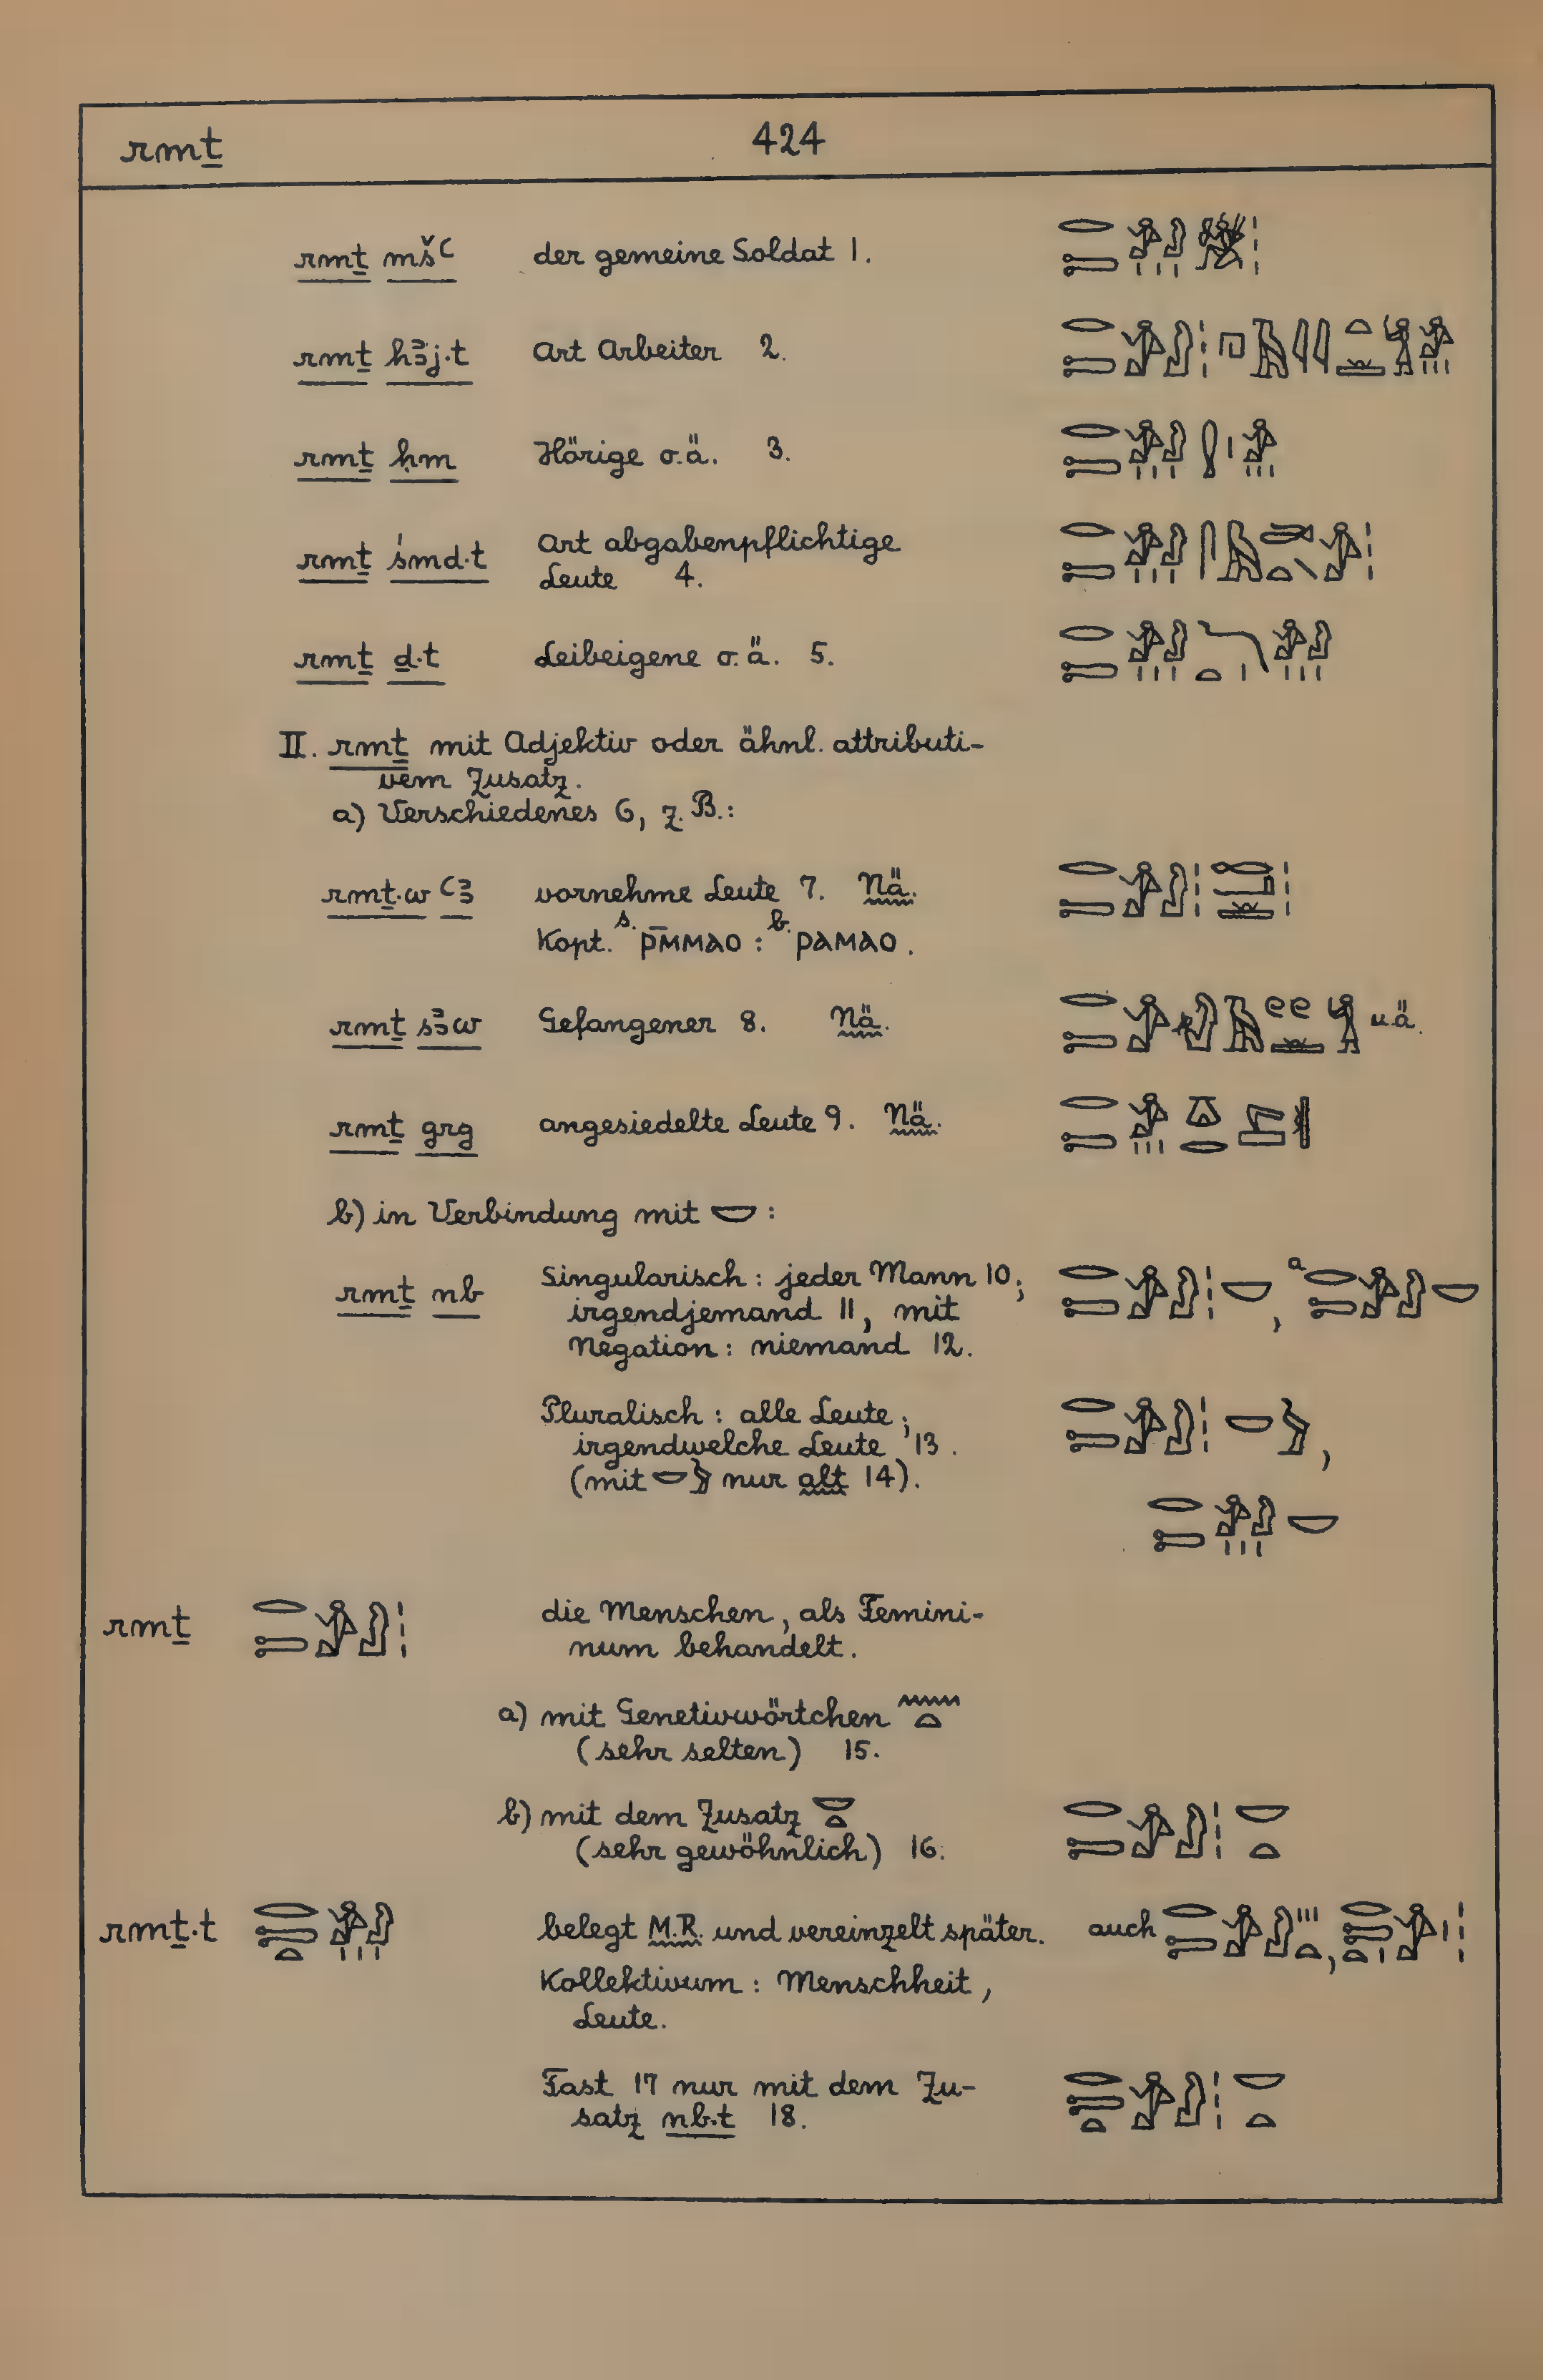 rmṯ 424
rmṯ mšꜥ der gemeine Soldat 1.
rmṯ hꜣj.t Art Arbeiter 2.
rmṯ ḥm Hörige o.ä. 3.
rmṯ śmd.t Art abgabenpflichtige
Leute 4.
rmṯ ḏ.t Leibeigene o.ä. 5.
II. rmṯ mit Adjektiv oder ähnl. attributi-
vem Zusatz.
a) Verschiedenes 6, z.B.:
rmṯ.w ꜥꜣ vornehme Leute 7. Nä.
Kopt. s. ⲣⲙ̄ⲙⲁⲟ : b. ⲣⲁⲙⲁⲟ.
rmṯ sꜣw Gefangener 8. Nä. u.ä.
rmṯ grg angesiedelte Leute 9. Nä.
b) in Verbindung mit 𓎟 :
rmṯ nb Singularisch : jeder Mann 10;
irgendjemand 11, mit
Negation : niemand 12.
Pluralisch : alle Leute;
irgendwelche Leute 13.
(mit 𓎟 nur alt 14).
rmṯ 𓂋𓍿𓀀𓁐𓏥 die Menschen, als Femini-
num behandelt.
a) mit Genetivwörtchen 𓈖𓏏
(sehr selten) 15.
b) mit dem Zusatz 𓎟𓏏
(sehr gewöhnlich) 16. 𓂋𓍿𓀀𓁐𓏥𓎟𓏏
rmṯ.t 𓂋𓍿𓏏𓀀𓁐𓏥 belegt M.R. und vereinzelt später. auch
Kollektivum : Menschheit,
Leute.
Fast 17 nur mit dem Zu-
satz nb.t 18. 𓂋𓍿𓏏𓀀𓁐𓏥𓎟𓏏